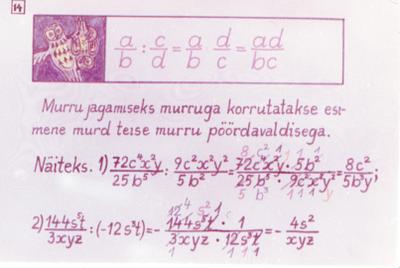 14
a/b : c/d = a/b d/c = ad/bc
Murru jagamiseks murruga korrutatakse esi-
mene murd teise murru pöördavaldisega.
Näiteks. 1) 72c⁴x²y/25b⁵ : 9c²x²y²/5b² = 72c⁴x²y · 5b²/25b⁵ · 9c²x²y² = 8c²/5b³y ;
2) 144s⁵t/3xyz : (-12s³t) = - 144s⁵t · 1/3xyz · 12s³t = - 4s²/xyz